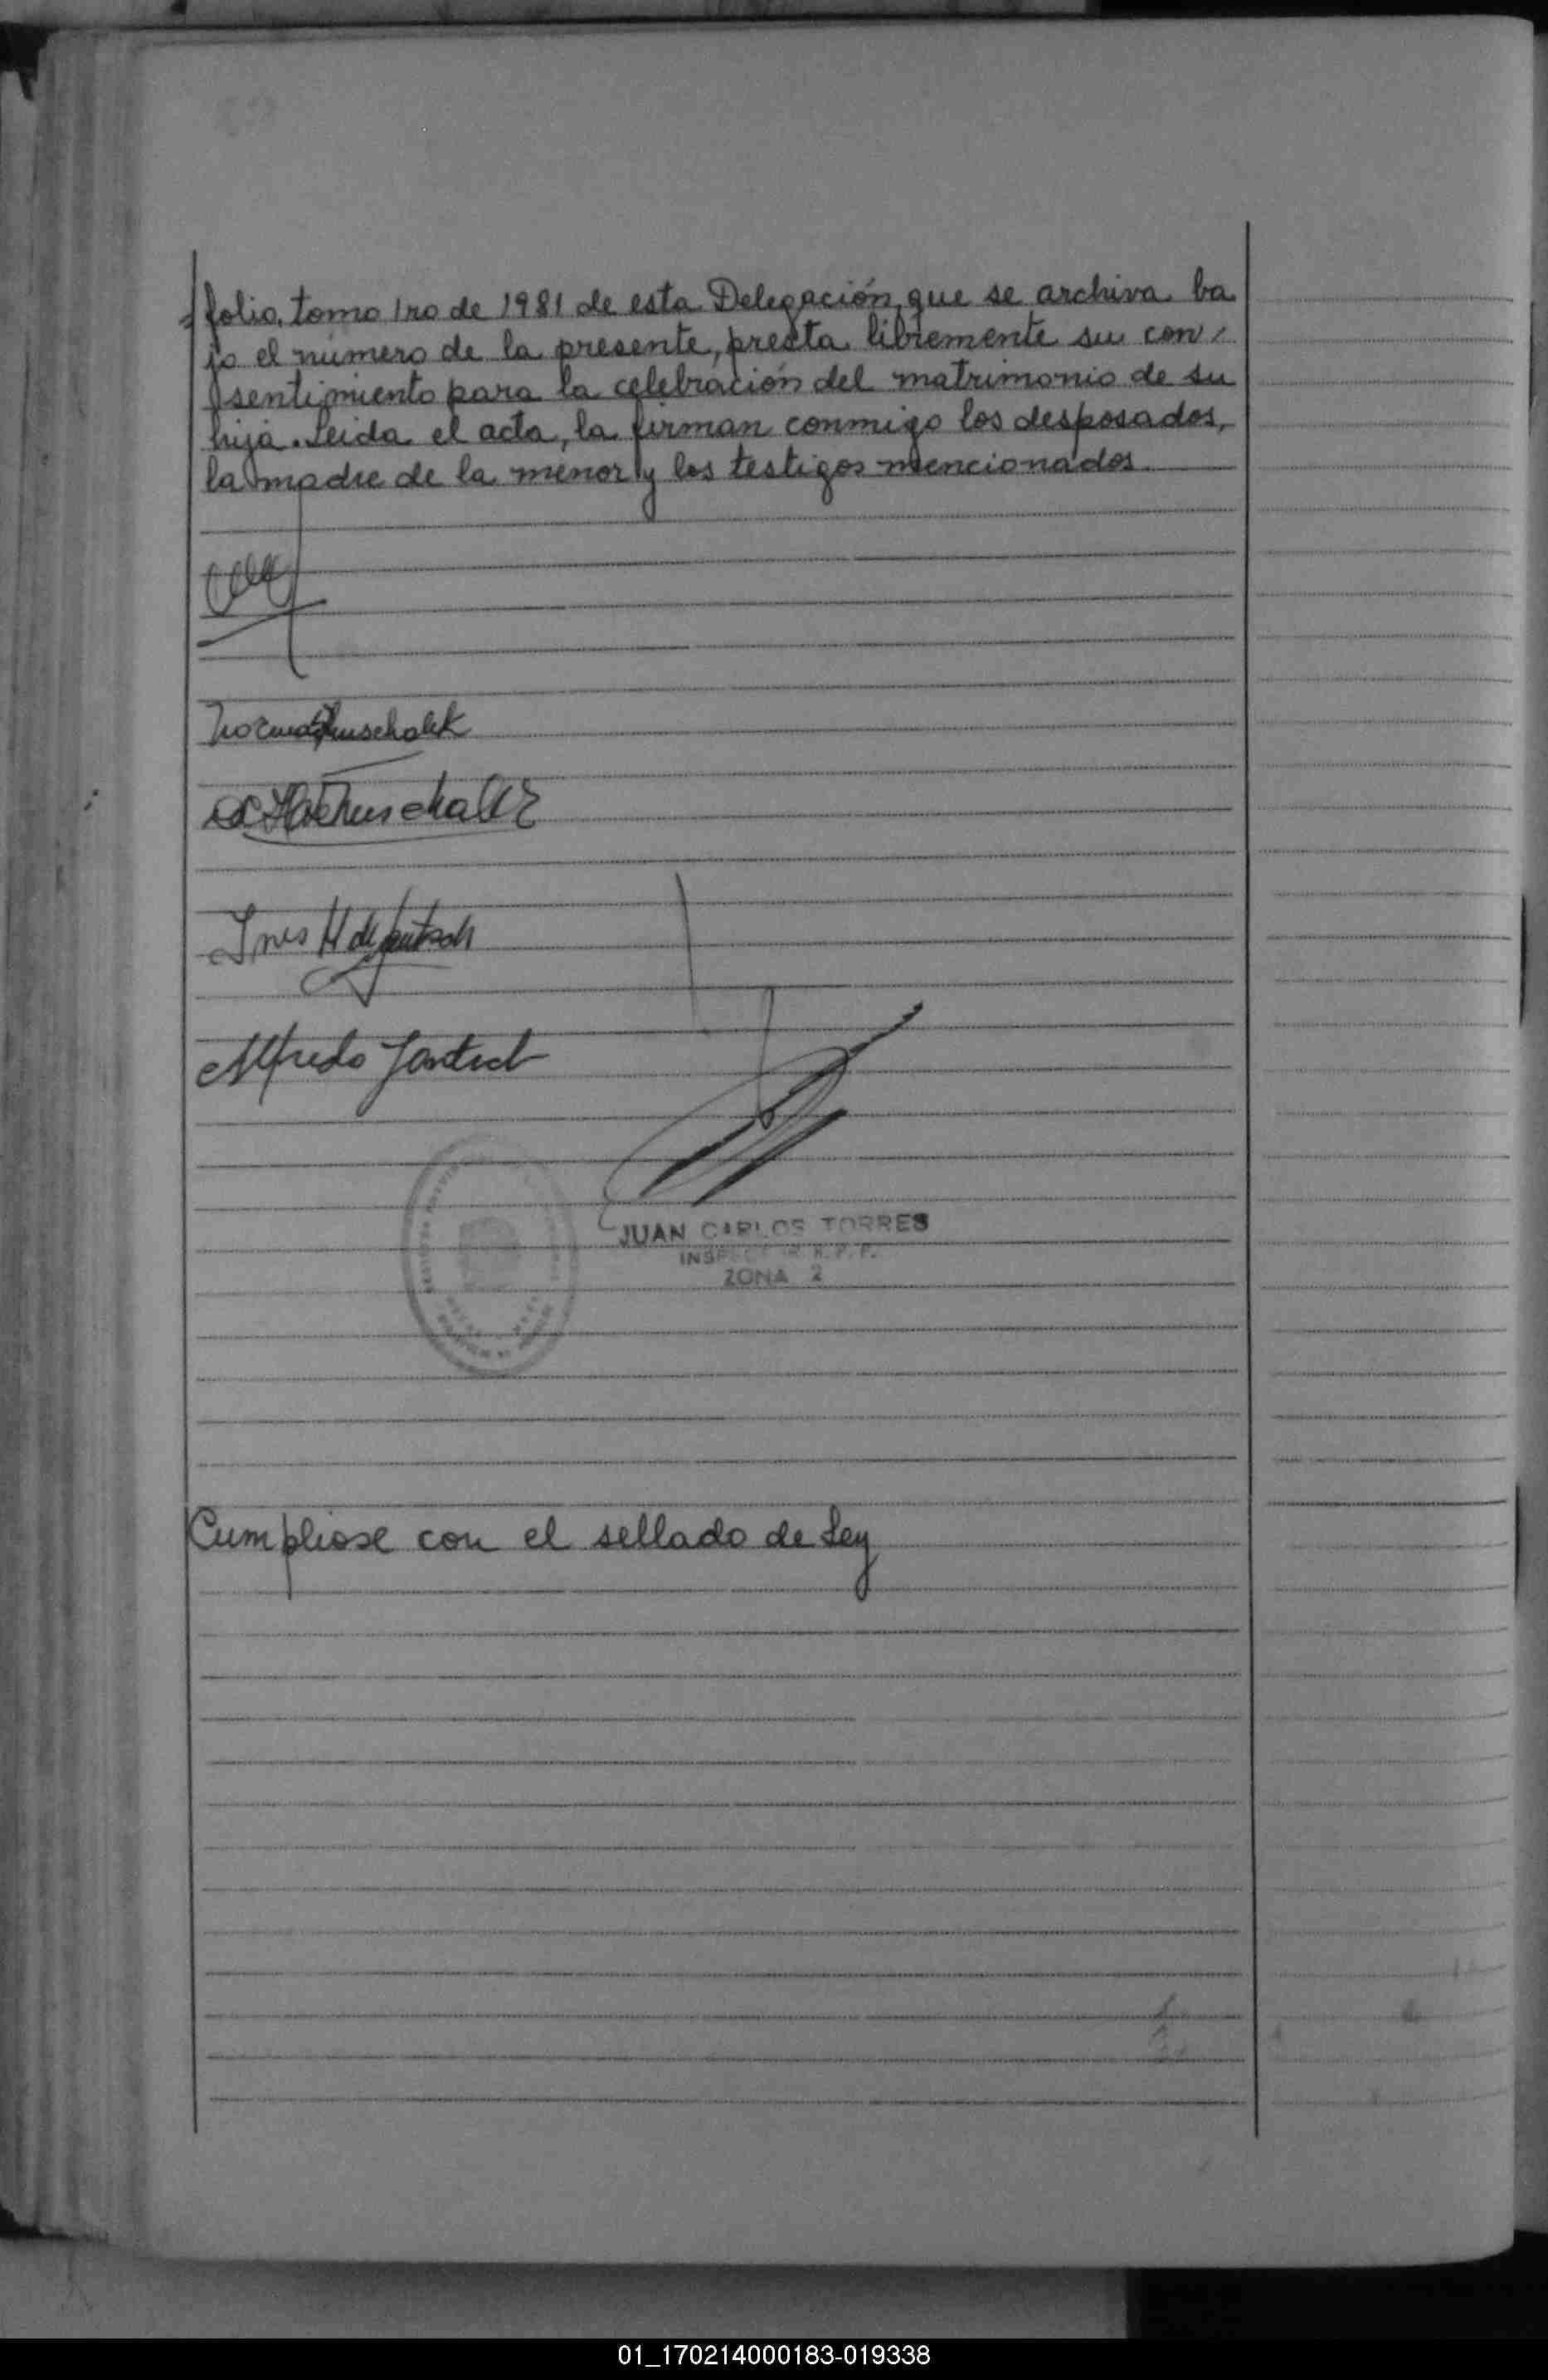 folio, tomo 1ro de 1981 de esta Delegación, que se archiva ba
jo el número de la presente, presta libremente su con/
sentimiento para la celebración del matrimonio de su
hija. Leida el acta, la firman conmigo los desposados,
la madre de la menor y los testigos mencionados.
Ines H de Jantsch
Alfredo Jantsch
JUAN CARLOS TORRES
INSPECTOR R.P.P.
ZONA 2
Cumpliose con el sellado de Ley
01_170214000183-019338